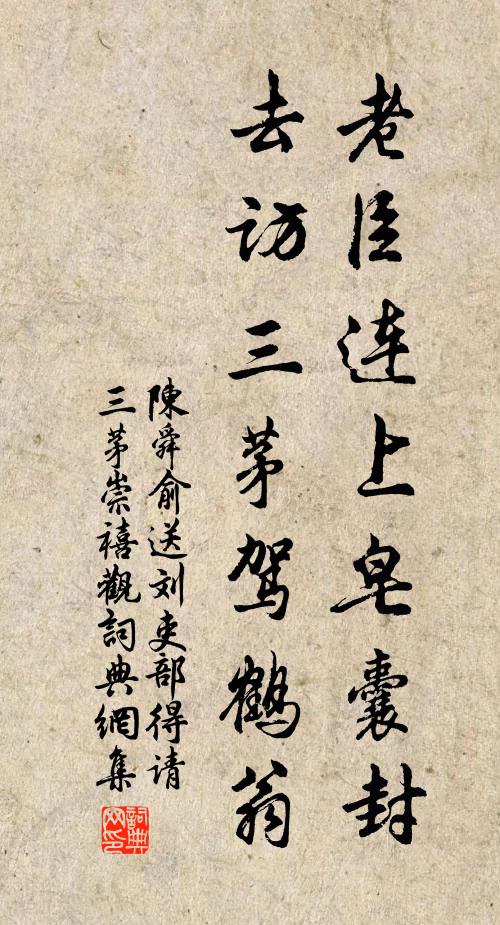 老臣连上皂囊封
去访三茅驾鹤翁
陳舜俞送刘吏部得请
三茅崇禧觀詞典網集
詞典网印